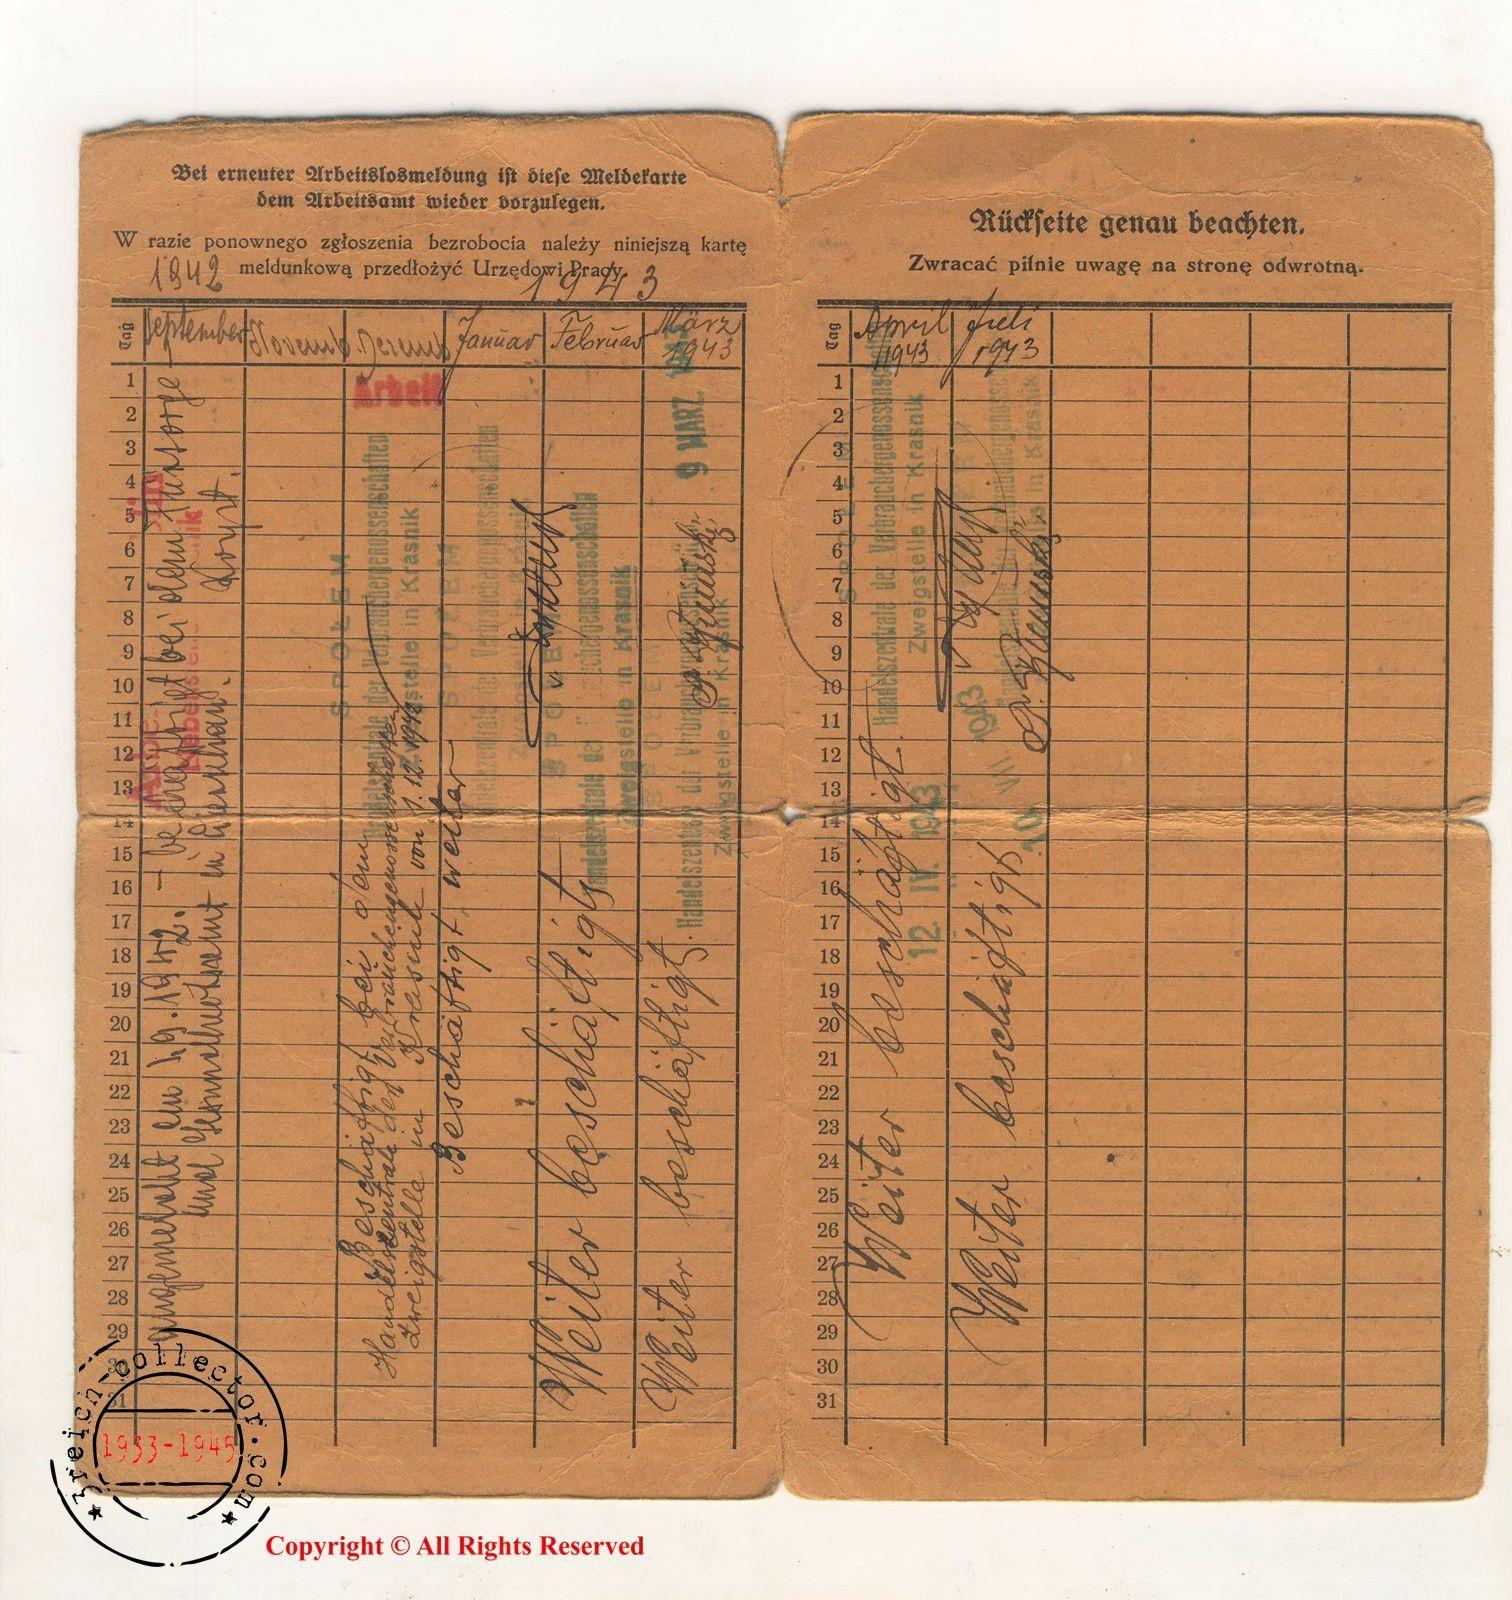 Bei erneuter Arbeitslosmeldung ist diese Meldekarte
dem Arbeitsamt wieder vorzulegen.
W razie ponownego zgłoszenia bezrobocia należy niniejszą kartę
meldunkową przedłożyć Urzędowi Pracy.
1942
1943
Tag
September
Novemb
Januar
Februar
März
1943
1
2
3
4
5
6
7
8
9
10
11
12
13
14
15
16
17
18
19
20
21
22
23
24
25
26
27
28
29
30
31
angemeldet am 1.9.1942. – bei dem Fürsorge
und in
Arbeit
Beschäftigt bei den
Handelszentrale der Verbrauchergenossenschaften
Zweigstelle in Krasnik vom 1.12.1942
SPOŁEM
Handelszentrale der Verbrauchergenossenschaften
Zweigstelle in Krasnik
Beschäftigt weiter
SPOŁEM
Handelszentrale der Verbrauchergenossenschaften
Weiter beschäftigt
SPOŁEM
Handelszentrale der Verbrauchergenossenschaften
Zweigstelle in Krasnik
Weiter beschäftigt.
9 MÄRZ 1943
SPOŁEM
Handelszentrale der Verbrauchergenossenschaften
Zweigstelle in Krasnik
Rückseite genau beachten.
Zwracać pilnie uwagę na stronę odwrotną.
Tag
April
1943
Juli
1943
1
2
3
4
5
6
7
8
9
10
11
12
13
14
15
16
17
18
19
20
21
22
23
24
25
26
27
28
29
30
31
Weiter beschäftigt.
SPOŁEM
Handelszentrale der Verbrauchergenossenschaften
Zweigstelle in Krasnik
12. IV. 1943
Weiter beschäftigt
10. VII. 1943
Zweigstelle in Krasnik
3reich-collector.com
1933-1945
Copyright © All Rights Reserved